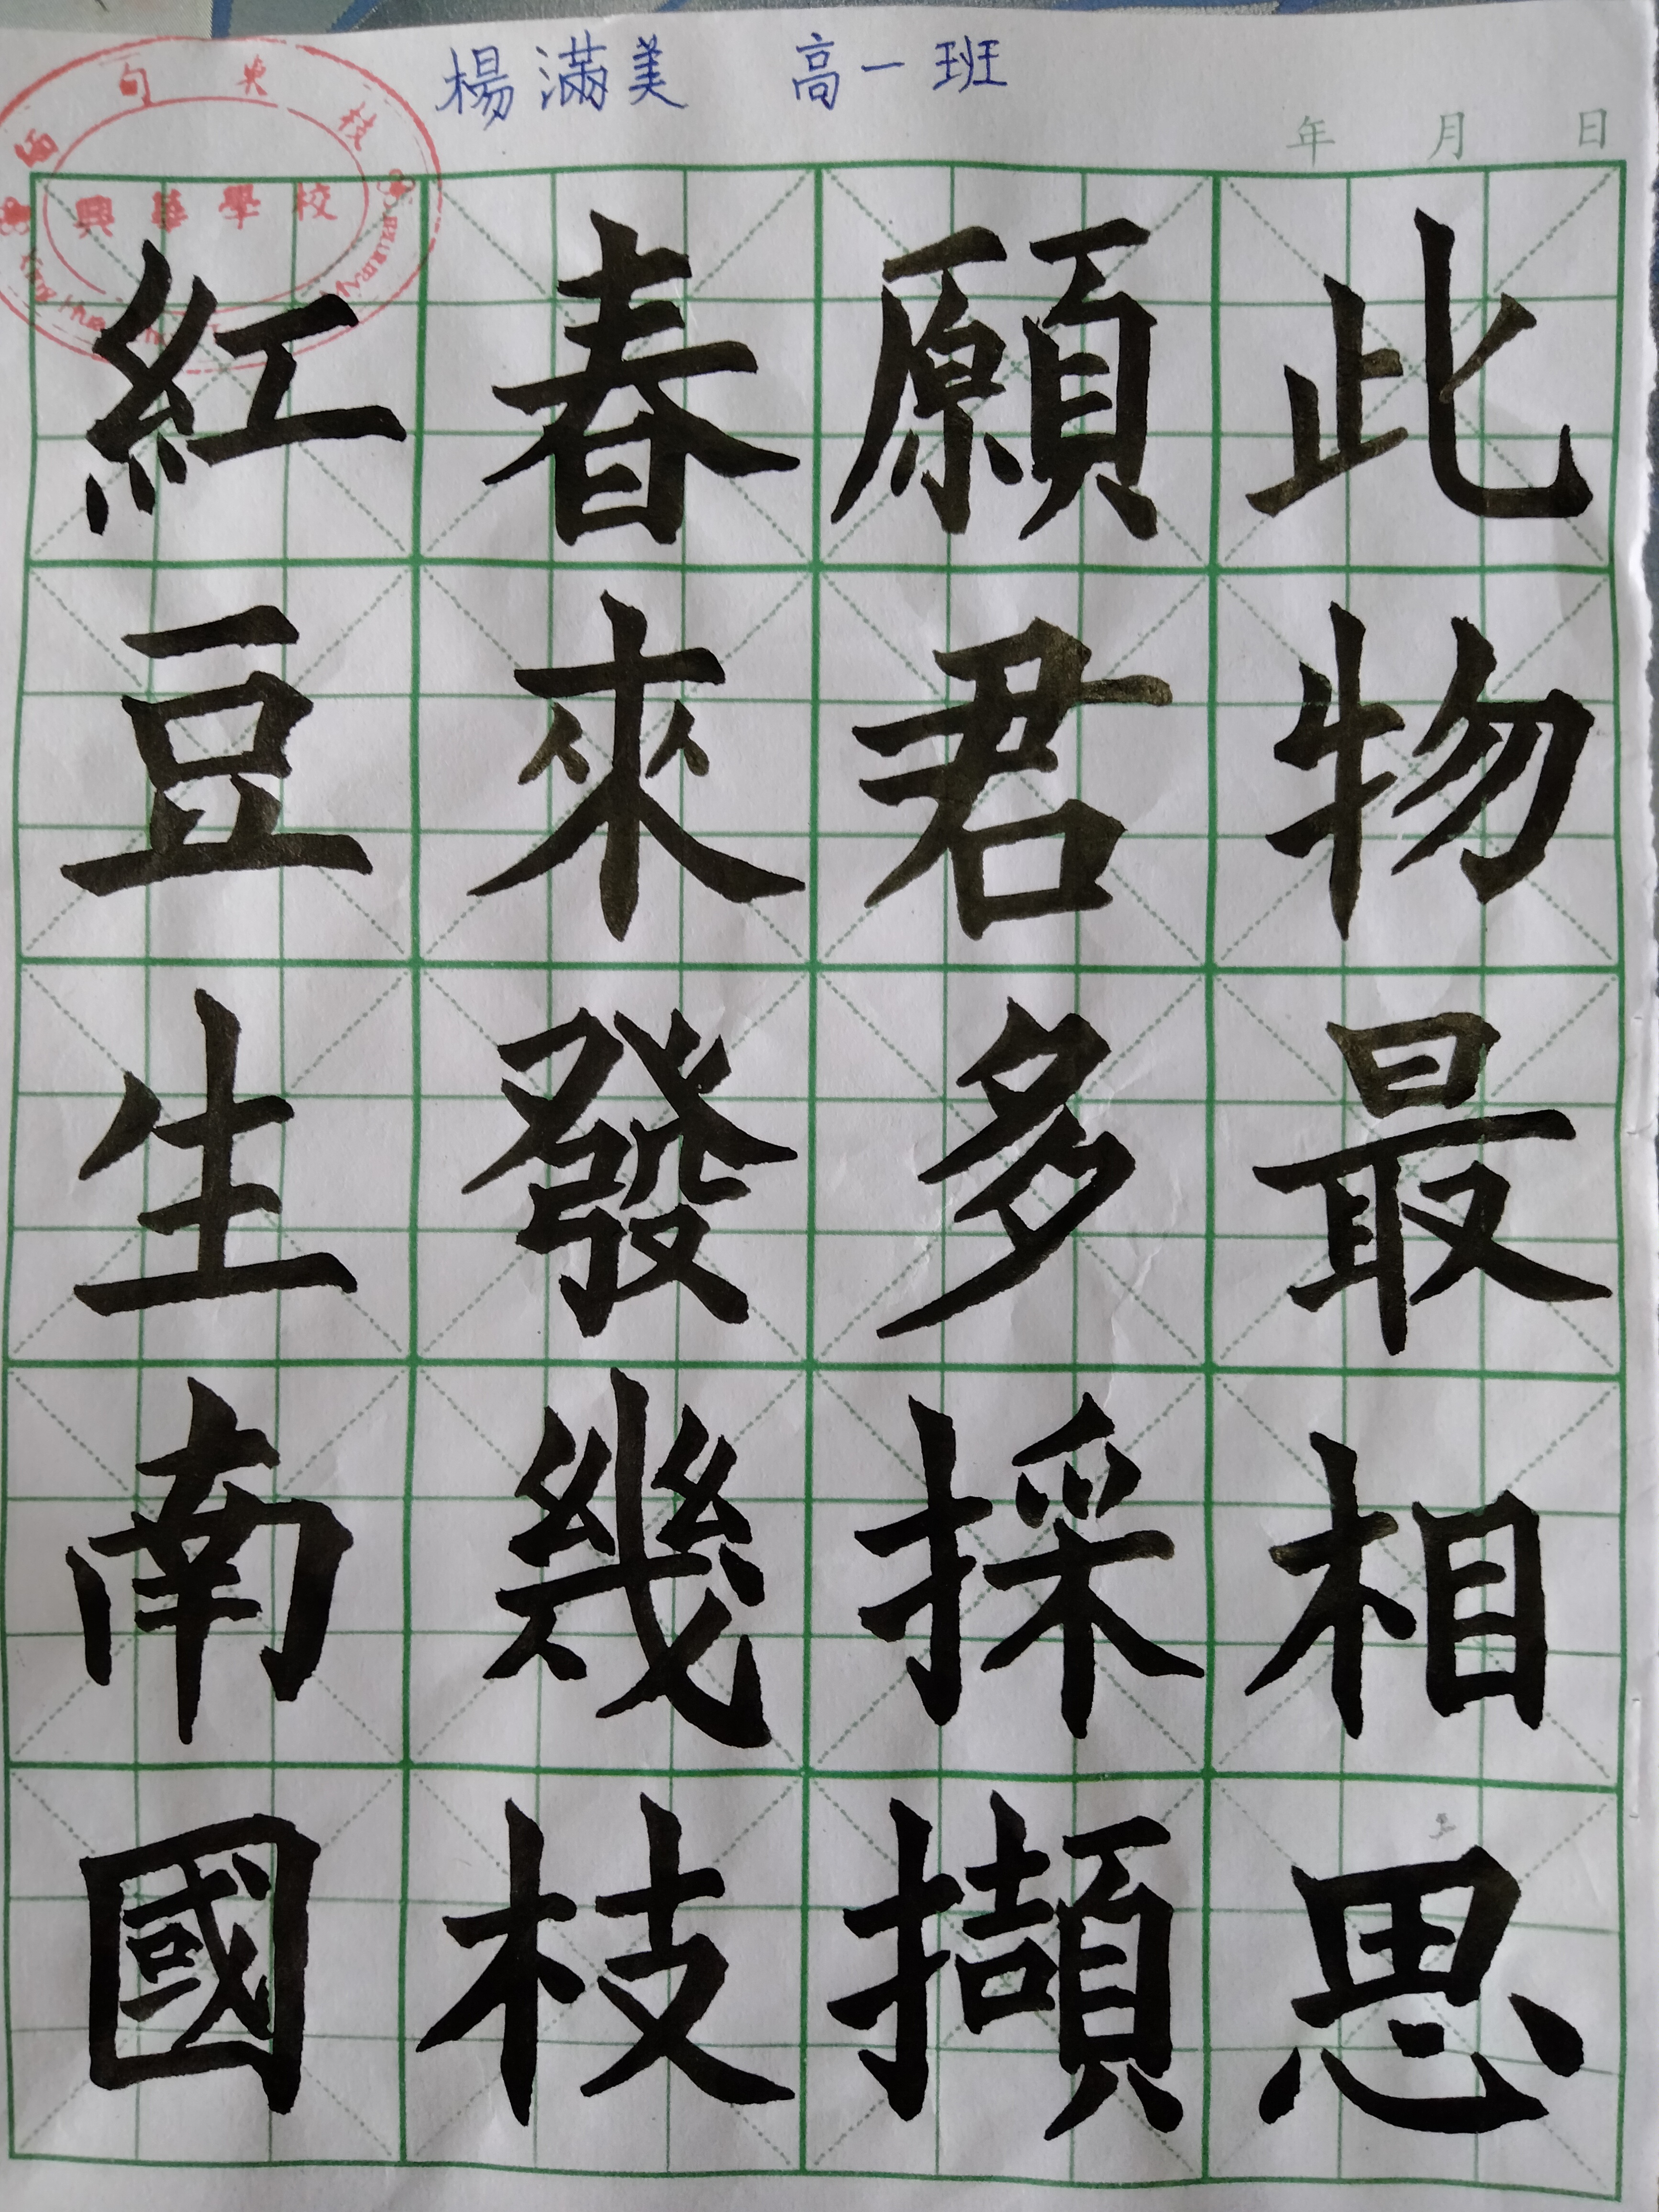 楊滿美 高一班
年 月 日
緬甸東枝
興華學校
紅豆生南國
春來發幾枝
願君多採擷
此物最相思